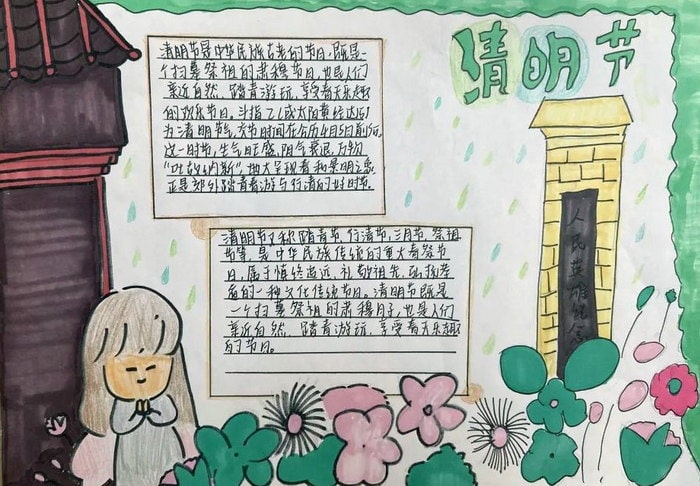 清明节
清明节是中华民族古老的节日,既是一
个扫墓祭祖的肃穆节日,也是人们
亲近自然、踏青游玩、享受春天乐趣
的欢乐节日。斗指乙(或太阳黄经达15°)
为清明节气,交节时间在公历4月5日前后。
这一时节,生气旺盛,阴气衰退,万物
“吐故纳新”,地大呈现春和景明之象,
正是郊外踏青春游与行清的好时节。
清明节又称踏青节、行清节、三月节、祭祖
节等,是中华民族传统的重大春祭节
日,属于慎终追远、礼敬祖先、弘扬孝
道的一种文化传统节日。清明节既是
一个扫墓祭祖的肃穆日子,也是人们
亲近自然、踏青游玩、享受春天乐趣
的节日。
人民英雄纪念